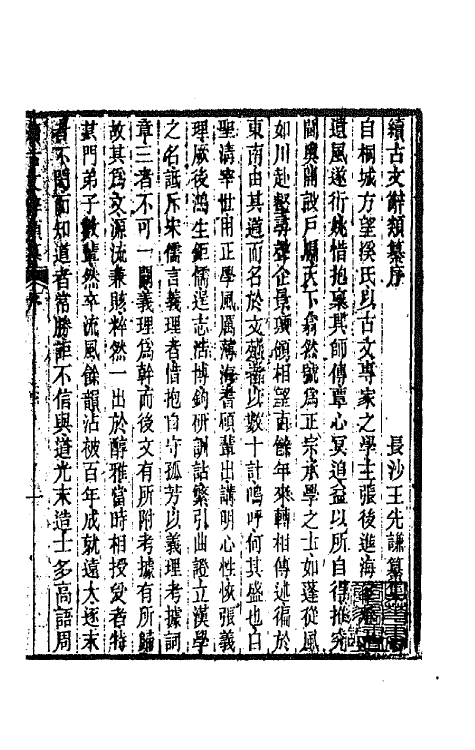 續古文辭類纂序
長沙王先謙纂
自桐城方望溪氏以古文專家之學主張後進海
遺風遂衍姚惜抱稟其師傳覃心冥追益以所自得推究
閫奧開設戶牖天下翕然號為正宗承學之士如蓬從風
如川赴壑尋聲企景項領相望百餘年來轉相傳述徧於
東南由其道而名於文苑者以數十計嗚呼何其盛也自
聖清宰世用正學風厲薄海耆碩輩出講明心性恢張義
理厥後鴻生鉅儒逞志浩博鉤研訓詁繁引曲證立漢學
之名詆斥宋儒言義理者惜抱自守孤芳以義理考據詞
章三者不可一闕義理為幹而後文有所附考據有所歸
故其為文源流兼賅粹然一出於醇雅當時相授受者特
其門弟子數輩然卒流風餘韻沾被百年成就遠大逐末
者不聞而知道者常勝詎不信與道光末造士多高語周